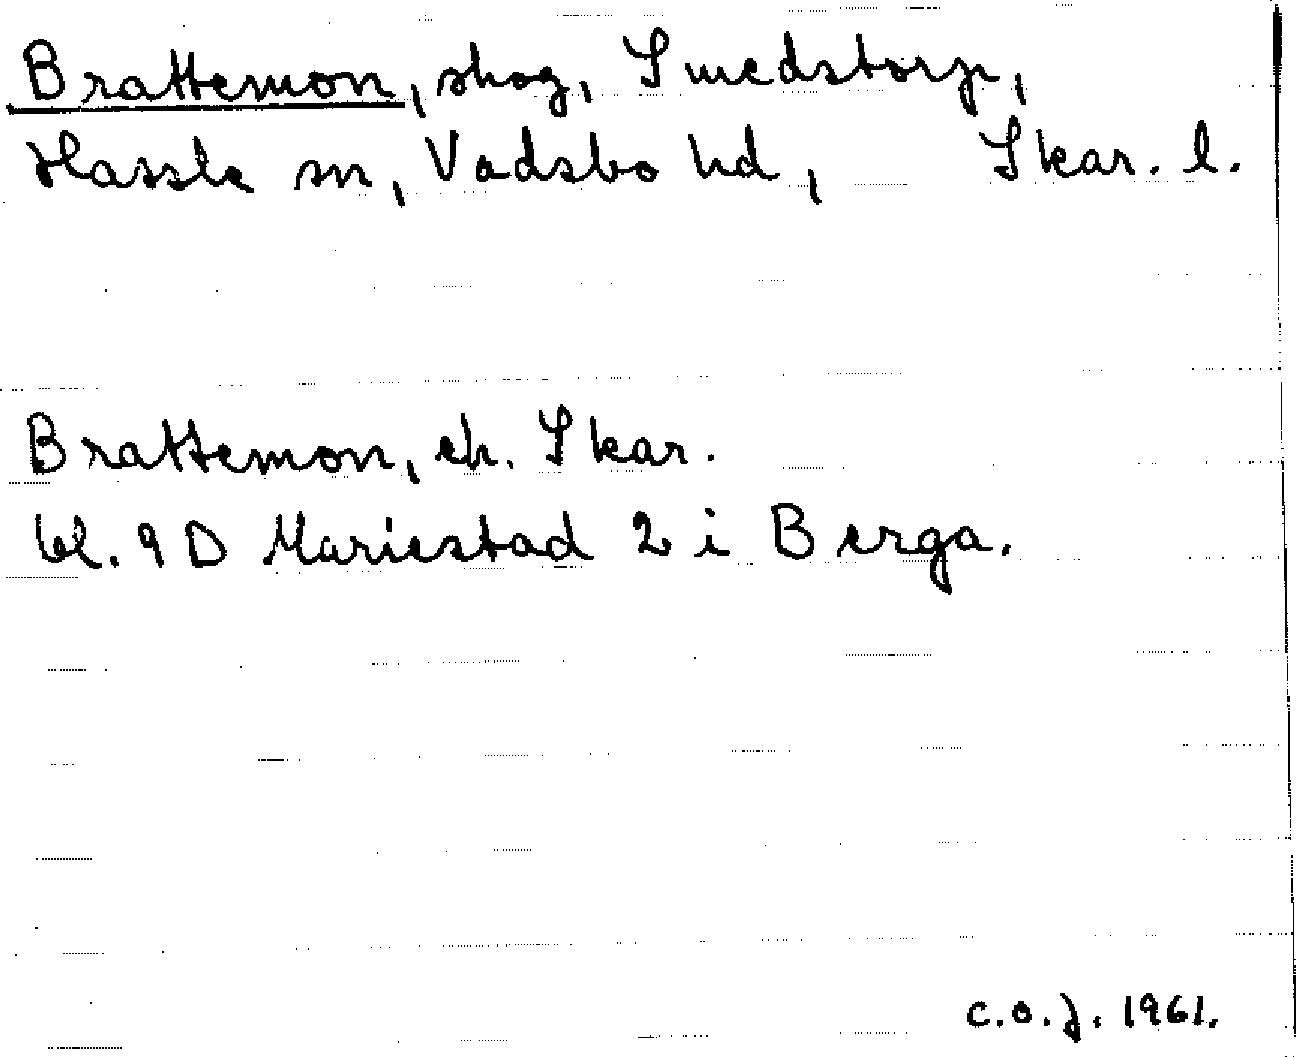 Brattemon, skog, Smedstorp,
Hassle sn, Vadsbo hd, Skar. l.
Brattemon, ek. Skar.
bl. 9 D Mariestad 2 i Berga.
C.O.J. 1961.